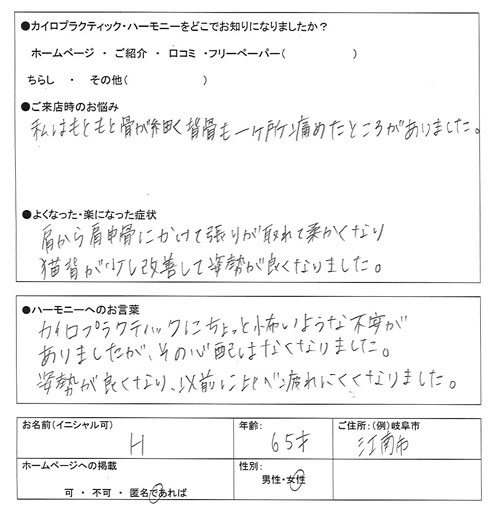 ●カイロプラクティック・ハーモニーをどこでお知りになりましたか?
ホームページ ・ ご紹介 ・ 口コミ ・フリーペーパー( )
ちらし ・ その他( )
●ご来店時のお悩み
私はもともと骨が細く背骨も一ヶ所痛めたところがありました。
●よくなった・楽になった症状
肩から肩甲骨にかけて張りが取れて柔かくなり
猫背が少し改善して姿勢が良くなりました。
●ハーモニーへのお言葉
カイロプラクティックにちょっと怖いような不安が
ありましたが、その心配はなくなりました。
姿勢が良くなり、以前に比べ疲れにくくなりました。
お名前(イニシャル可) 年齢: ご住所:(例)岐阜市
H 65才 江南市
ホームページへの掲載 性別:
可 ・ 不可 ・ 匿名であれば 男性・女性